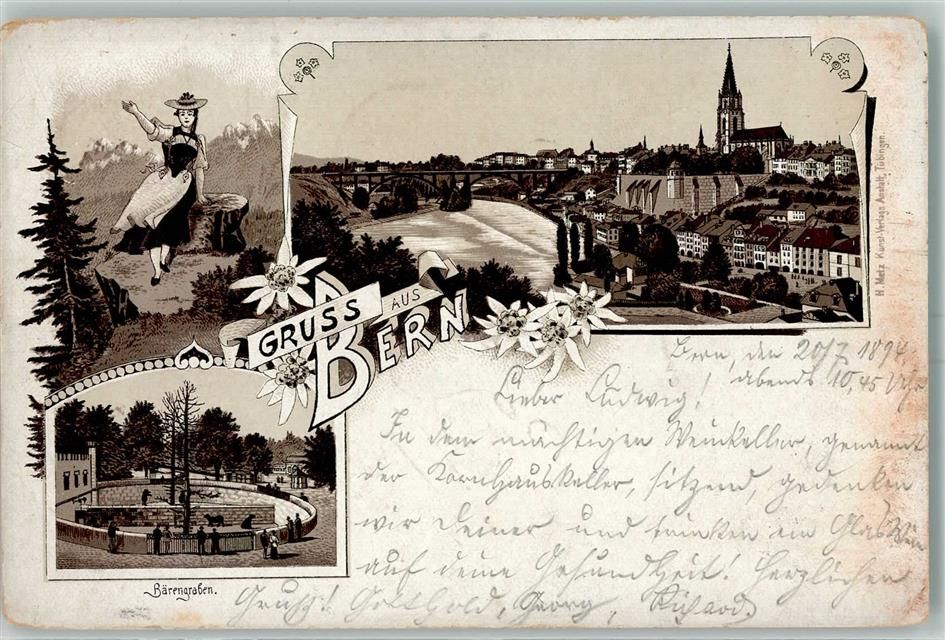 GRUSS AUS
BERN
H. Metz Kunst-Verlags-Anstalt, Tübingen.
Bärengraben.
Bern, den 20/7 1894
abends 10,45 Uhr
Lieber Ludwig!
In dem mächtigen Weinkeller, genannt
der Kornhauskeller, sitzend, gedenken
wir Deiner und trinken ein Glas Wein
auf deine Gesundheit! Herzlichen
Gruß! Gotthold, Georg, Richard.